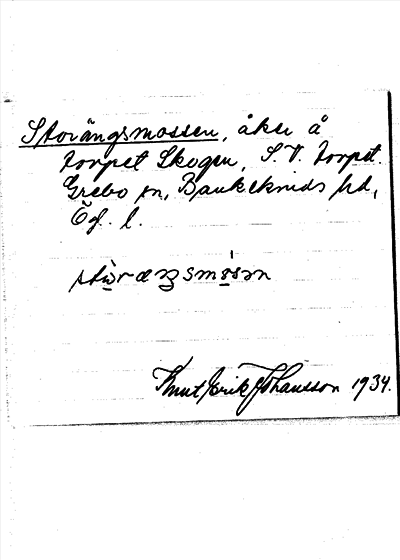 Storängsmossen, åker å
torpet Skogen, S. V. torpet.
Grebo sn, Bankekinds hd,
Ög. l.
Knut Erik Johansson 1934.